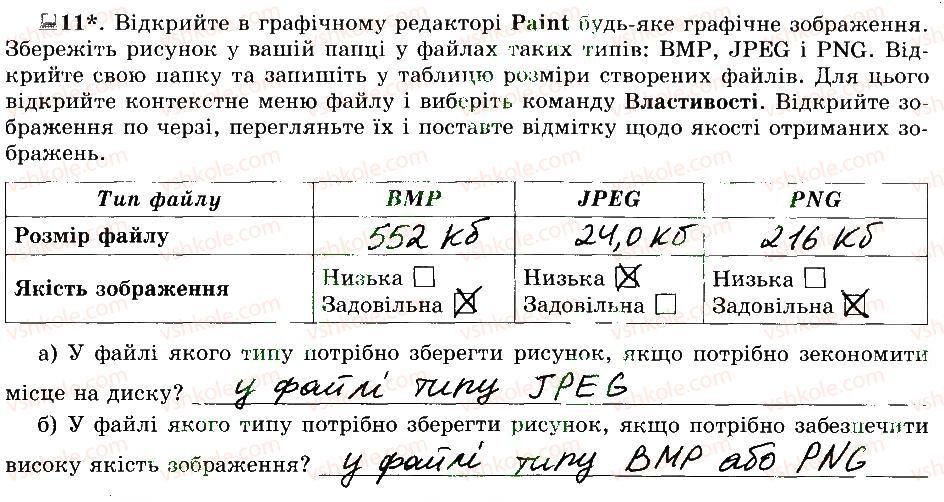 11*. Відкрийте в графічному редакторі Paint будь-яке графічне зображення.
Збережіть рисунок у вашій папці у файлах таких типів: BMP, JPEG і PNG. Від-
крийте свою папку та запишіть у таблицю розміри створених файлів. Для цього
відкрийте контекстне меню файлу і виберіть команду Властивості. Відкрийте зо-
браження по черзі, перегляньте їх і поставте відмітку щодо якості отриманих зо-
бражень.
Тип файлу BMP JPEG PNG
Розмір файлу 552 Кб 24,0 Кб 216 Кб
Якість зображення
Низька Низька Низька
Задовільна Задовільна Задовільна
а) У файлі якого типу потрібно зберегти рисунок, якщо потрібно зекономити
місце на диску? у файлі типу JPEG
б) У файлі якого типу потрібно зберегти рисунок, якщо потрібно забезпечити
високу якість зображення? у файлі типу BMP або PNG
vshkole.com